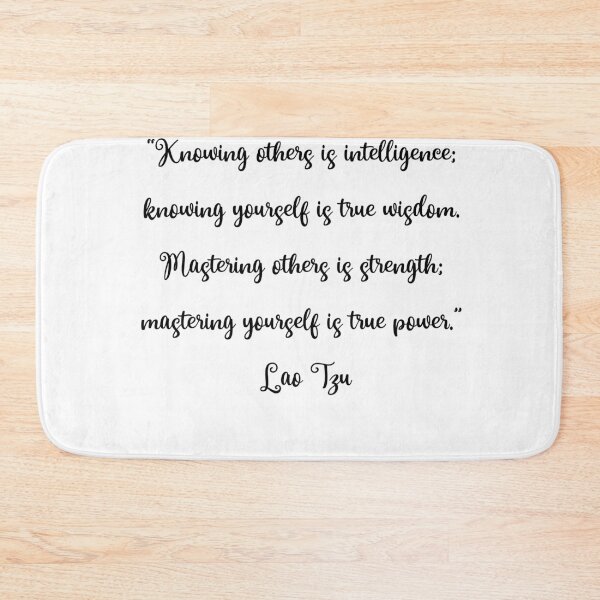 “Knowing others is intelligence;
knowing yourself is true wisdom.
Mastering others is strength;
mastering yourself is true power.”
Lao Tzu